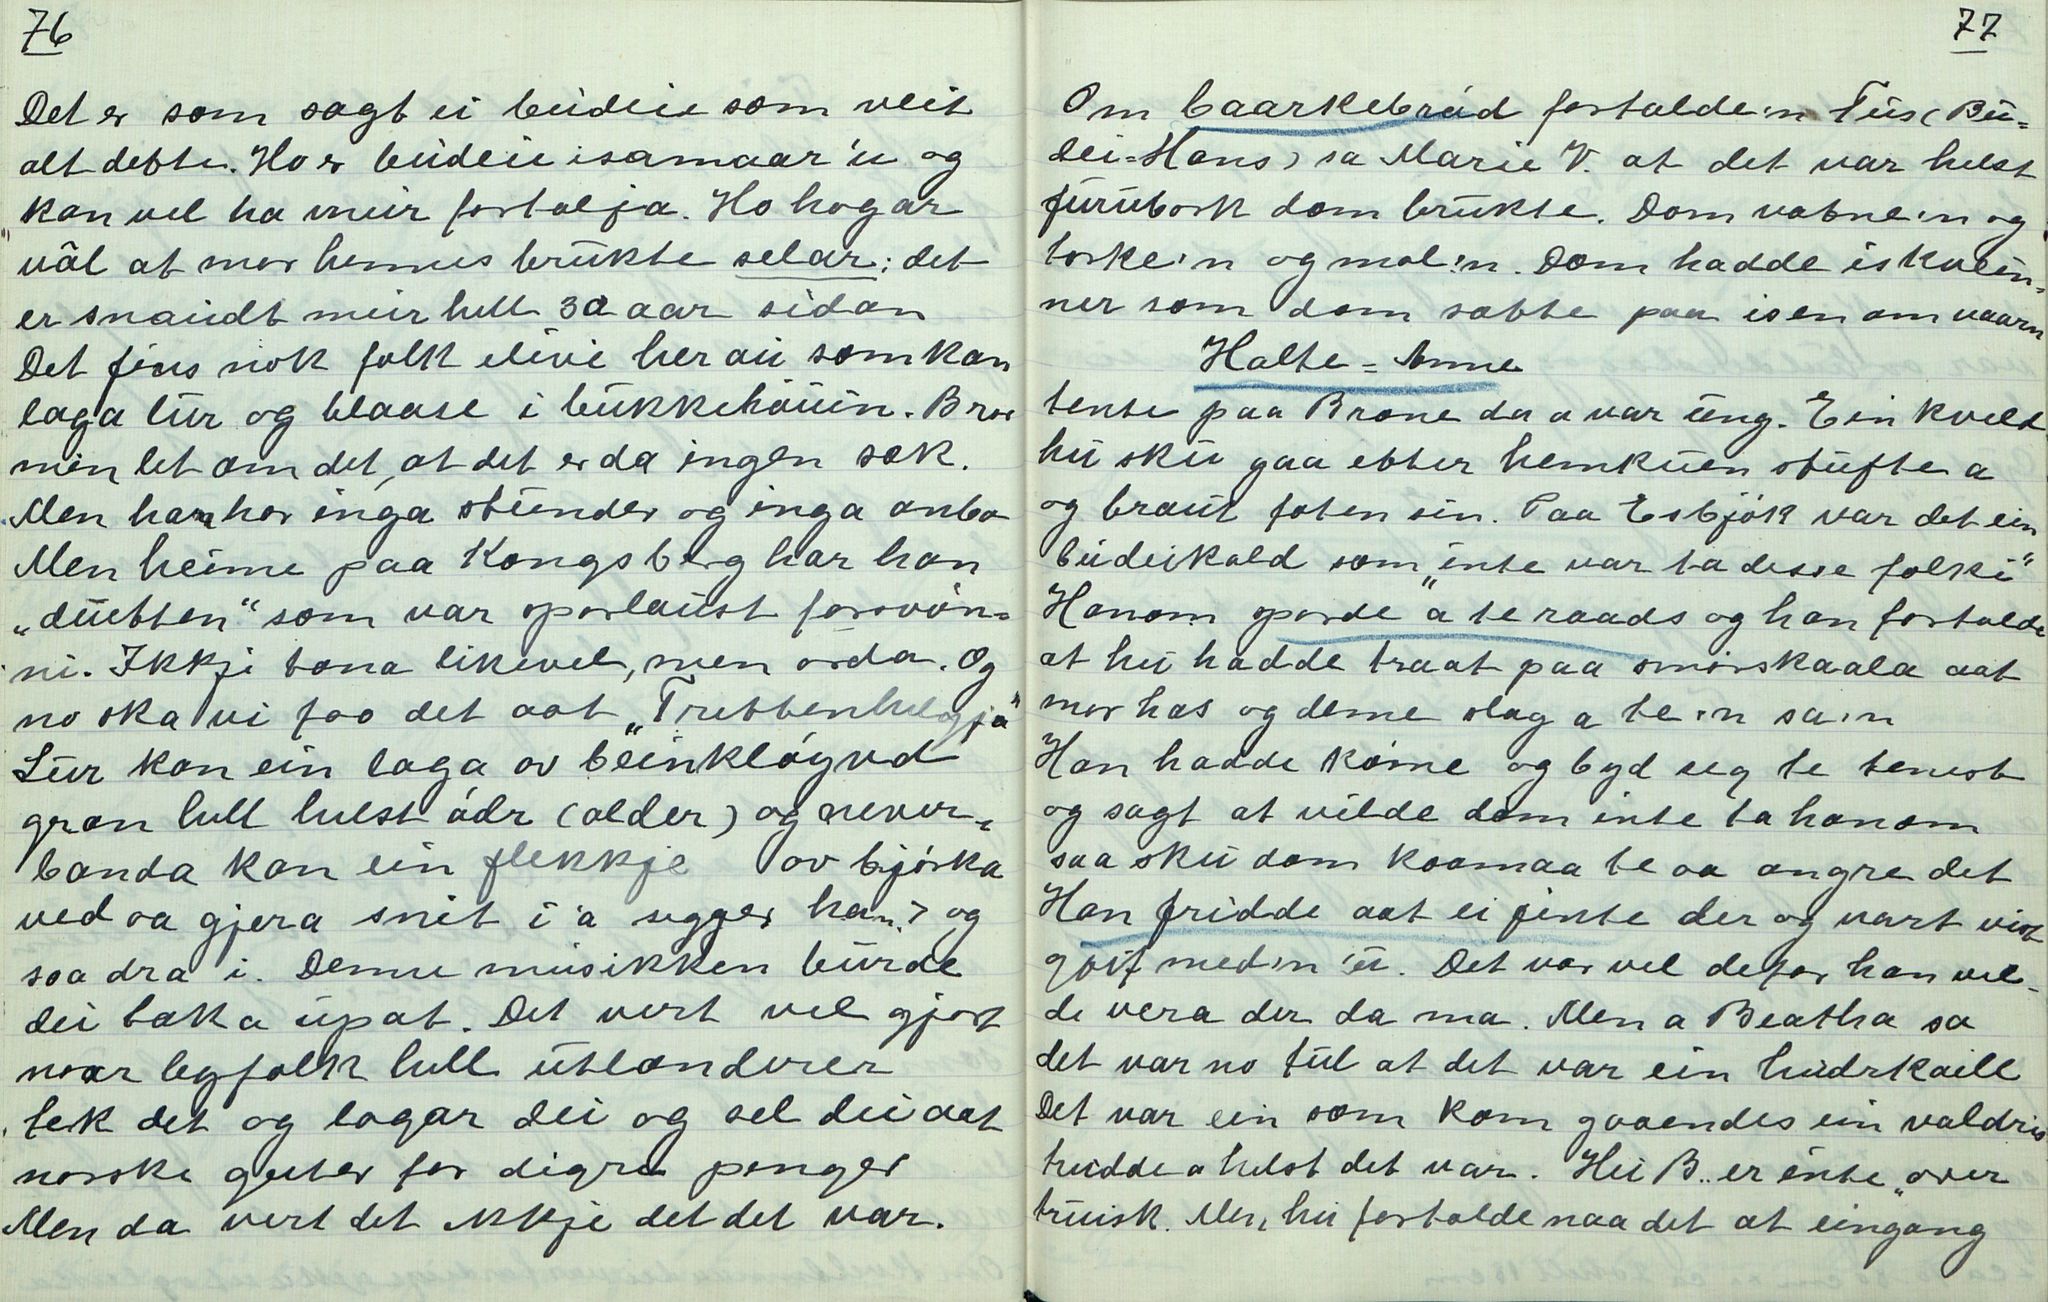 76
Det er som sagt ei budeie som veit
alt dette. Ho er budeie isamaar 'u og
kan vel ha meir fortelja. Ho hogar
väl at mor hennes brukte selar; det
er snaudt meir hell 30 aar sidan
Det fins nok folk elivi her au som kan
laga lur og blaase i bukkehôuun. Bror
min let om det, at det er da ingen sak.
Men han har inga stunder og inga anbo
Men heime paa Kongsberg har han
"duetten" som var sporlaust forsvön-
ni. Ikkji tona likevel, men orda. Og
no ska vi faa det aat "Truttenhelgja"
Lur kan ein laga av beinkløyvd
gran hell helst ådr (older) og never-
banda kan ein flekkje av bjørka
ved aa gjera snit i 'a segger han? og
saa dra i. Denne musikken burde
dei taka upat. Det vert vel gjort
naar byfolk hell utlendinger
tek det og lagar dei og sel dei aat
norske guter for digre penger
Men da vert det ikkje det det var.
77
Om baarkebröd fortalde'n Tus (Bu-
dei-Hans) sa Marie V. at det var helst
furubork dom brukte. Dom vatne'n og
torke'n og mol'n. Dom hadde iskvein-
ner som dom sette paa isen om vaarn
Halte-Anne
tente paa Brone da a var ung. Ein kveld
hu sku gaa etter hemkuen stufte a
og braut foten sin. Paa Esbjök var det ein
budeikald som "inte var ta desse folki"
Honom sporde a te raads og han fortalde
at hu hadde traat paa smörskaala aat
mor has og denne slag a te'n sa'n
Han hadde kome og byd seg te tenest
og sagt at vilde dom inte ta honom
saa sku dom koomaa te aa angre det
Han fridde aat ei jente der og vart vist
goif med'n 'u. Det var vel defor han vel-
de vera der da ma. Men a Beatha sa
det var no tul at det var ein hudrkaill
Det var ein som kom gaaendes ein valdris
trudde a helst det var. Hu B. er inte "over
truisk. Men hu fortalde naa det at eingang